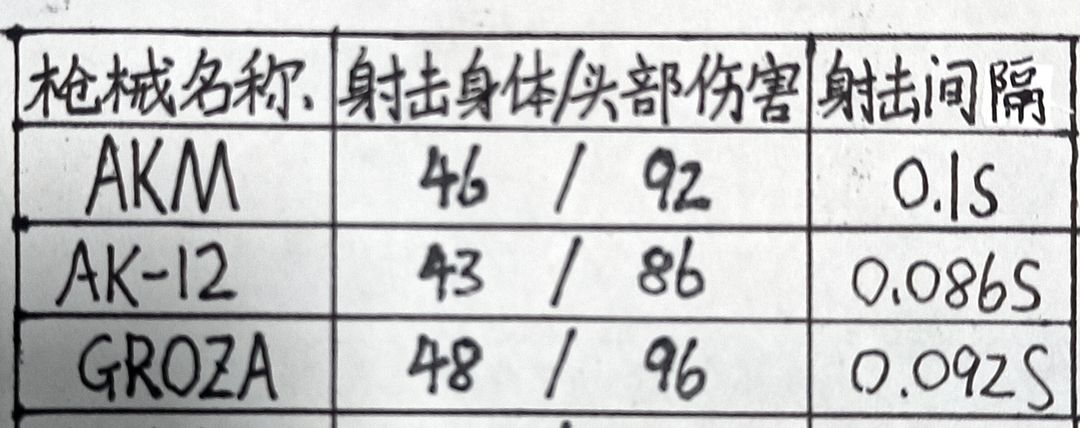 枪械名称. 射击身体/头部伤害 射击间隔
AKM 46 / 92 0.1S
AK-12 43 / 86 0.086S
GROZA 48 / 96 0.092S